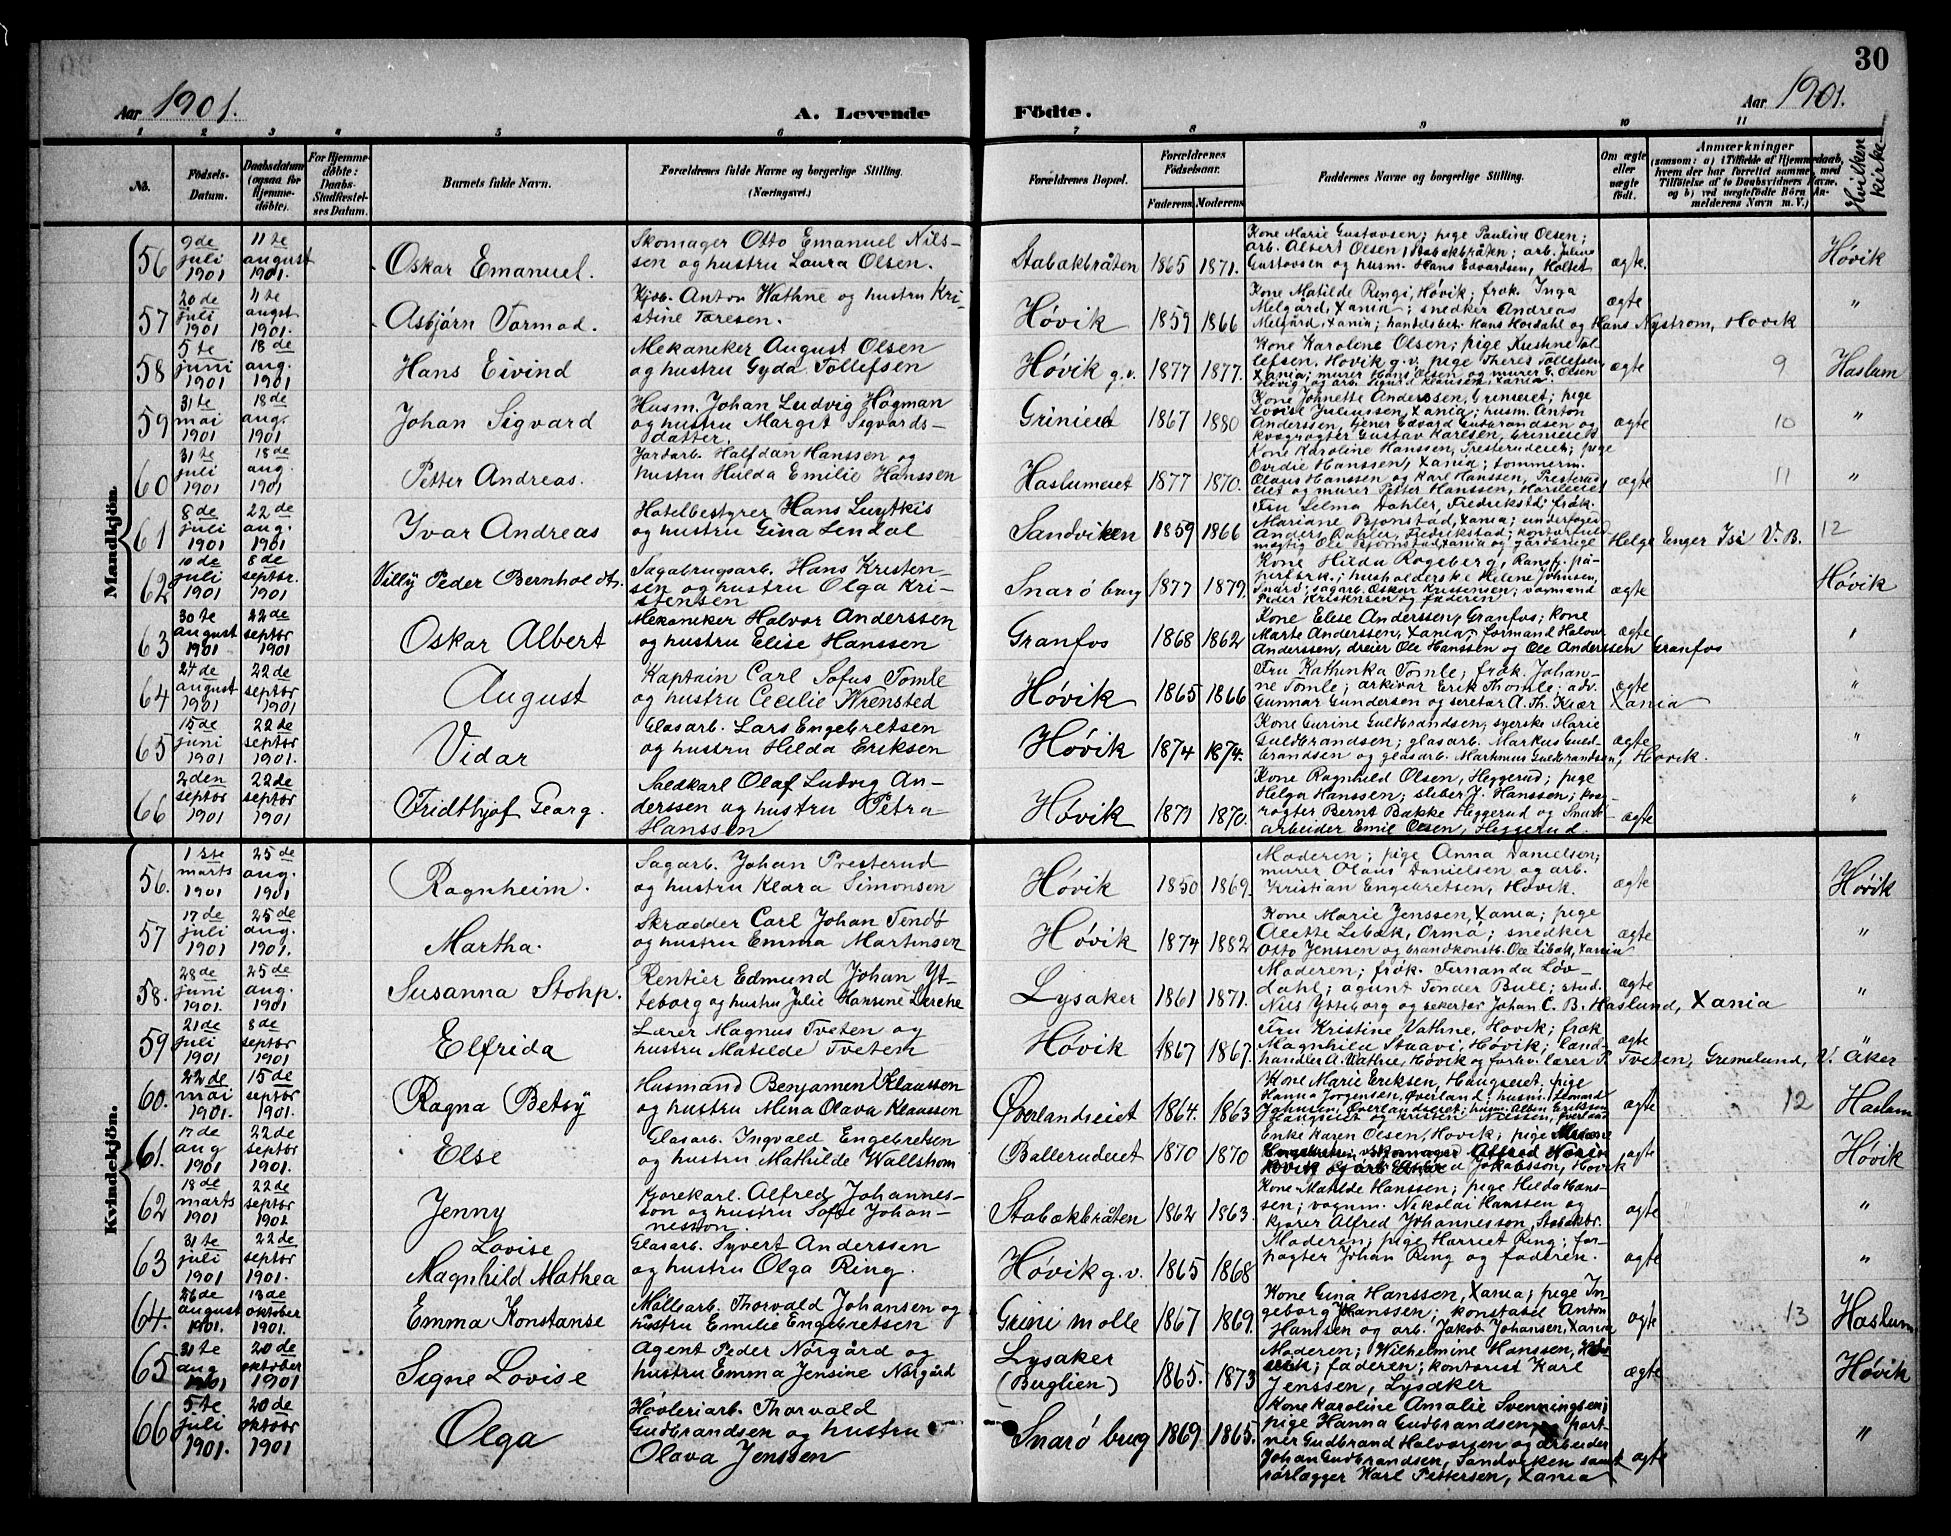 30
Aar 1901.
A. Levende Födte.
Aar 1901.
1 2 3 4 5 6 7 8 9 10 11
No.
Födsels-Datum.
Daabsdatum (ogsaa for Hjemme-döbte).
For Hjemme-döbte: Daabs-Stadfæstel-ses Datum.
Barnets fulde Navn.
Forældrenes fulde Navne og borgerlige Stilling. (Næringsvei.)
Forældrenes Bopæl.
Forældrenes Födselsaar.
Faderens. Moderens.
Faddernes Navne og borgerlige Stilling.
Om ægte eller uægte födt.
Anmærkninger
(saasom: a) i Tilfælde af Hjemmedaab, hvem der har forrettet samme, med Tilföielse af to Daabsvidners Navne, og b) ved uægtefödte Börn Anmelderens Navn m. V.)
Hvilken kirke
Mandkjön.
56 9de juli 1901 11te august 1901. Oskar Emanuel. Skomager Otto Emanuel Nilssen og hustru Laura Olsen. Stabækbråten 1865 1871. Kone Marie Gustavsen; pige Paulina Olsen; arb. Albert Olsen, Stabækbråten; arb. Julius Gustavsen og husm. Hans Edvardsen, Holtet ægte. Høvik
57 20de juli 1901 11te augst 1901. Asbjørn Tormod. Kjøb. Anton Wathne og hustru Kristine Toresen. Høvik 1859 1866 Kone Matilde Ringi, Høvik; frøk. Inga Melgård, Xania; snedker Andreas Melgård, Xania; handelsbet. Hans Hoidahl og Hans Nystrøm, Høvik ægte "
58 5te juni 1901 18de aug. 1901 Hans Eivind Mekaniker August Olsen og hustru Gyda Tollefsen Høvik g.v. 1877 1877. Kone Karolene Olsen; pige Kristine Tollefsen, Høvik g.v. pige Theres Tollefsen, Xania; murer Hans Olsen og murer E. Olsen Høvig og arb. Sigurd Klausen, Xania. ægte 9 Haslum
59 31te mai 1901 18de aug. 1901 Johan Sigvard Husm. Johan Ludvig Högman og hustru Margit Sigvardsdatter. Grinieiet 1867 1880 Kone Johnette Anderssen, Grinieiet; pige Lovise Juliussen, Xania; husm. Anton Anderssen, tjener Edvard Gulbrandsen og kvægrøgter Gustav Karlsen, Grinieiet ægte 10 "
60 31te juli 1901 18de aug. 1901 Petter Andreas. Jordarb. Halfdan Hanssen og hustru Hulda Emilie Hanssen Haslumeiet 1877 1870. Kone Karoline Hanssen, Presterudeiet; pige Ovidie Hanssen, Xania; tømmerm. Olaus Hanssen og Karl Hanssen, Presterudeiet og murer Petter Hanssen, Harsleiet ægte 11 "
61 8de juli 1901 22de aug. 1901 Yvar Andreas Hotelbestyrer Hans Luytkis og hustru Gina Lendal Sandviken 1859 1866 Fru Selma Dahler, Fredrikstad; frøk. Mariane Bjønstad, Xania; underfoged Anders Dahler, Fredrikstad; kontorfuldmægtig Ole Bjørnstad, Xania og gårdbruger Helge Enger Isi V.B. 12
62 10de juli 1901 8de septbr. 1901 Villy Peder Bernholdt. Sagbrugsarb. Hans Kristensen og hustru Olga Kristensen Snarö brug 1877 1879. Kone Hilda Rogeberg, Ransfj. papirfbrk.; husholderske Helene Johnsen, Snarö; sagarb. Oskar Kristensen; vognmand Peder Kristensen og faderen ægte Høvik
63 30te august 1901 22de septbr 1901 Oskar Albert Mekaniker Halvor Anderssen og hustru Elise Hanssen Granfos 1868 1862 Kone Elise Anderssen, Granfos; kone Marte Anderssen, Xania; formand Halvor Anderssen, dreier Ole Hanssen og Ole Anderssen Granfos ægte "
64 24de august 1901 22de septbr 1901 August Kaptain Carl Sofus Tomle og hustru Cecilie Wrensted Høvik 1865 1866 Fru Kathinka Tomle; frøk. Johanne Tomle; arkivar Erik Thomle; adv. Gunnar Gundersen og secretær A. Th. Kiær Xania ægte "
65 15de juni 1901 22de septbr 1901. Vidar Glasarb. Lars Engebretsen og hustru Hilda Eriksen Høvik 1874 1874. Kone Gurine Guldbrandsen, syerske Marie Guldbrandsen; glasarb. Markus Guldbrandsen og glasarb. Martinus Guldbrandsen, Høvik. ægte "
66 2den septbr 1901 22de septbr 1901 Fridthjof Georg. Saldkarl Olaf Ludvig Anderssen og hustru Petra Hanssen Høvik 1871 1870. Kone Ragnhild Olsen, Heggerud; pige Helga Hanssen; sleber J. Hanssen; kvægrøgter Bernt Bakke Heggerud og arbeider Emil Olsen, Heggerud. ægte "
Kvindekjön.
56. 1ste marts 1901 25de aug. 1901 Ragnheim. Sagarb. Johan Presterud og hustru Klara Simonsen Høvik 1850 1869. Moderen; pige Anna Danielsen; murer Olaus Danielsen og arb. Kristian Engebretsen, Høvik. ægte Høvik
57 17de juli 1901 25de aug. 1901. Martha. Skrædder Carl Johan Tendt og hustru Emma Martinsen Høvik 1874 1882 Kone Marie Jenssen, Xania; pige Alette Libak, Ormå; snedker Otto Jenssen og brandkonstb. Ole Libak, Xania ægte "
58. 28de juni 1901. 25de aug. 1901 Susanna Stohp. Rentier Edmund Johan Ytteborg og hustru Julie Hansine Lerche Lysaker 1861 1871. Moderen; frøk. Fernanda Løvdahl; agent Tonder Bull; stud. Nils Ytteborg og sekertær Johan C. B. Haslund, Xania ægte "
59 21de juli 1901 8de septbr 1901 Elfrida Lærer Magnus Tveten og hustru Matilde Tvetem Høvik 1867 1867. Fru Kristine Vathne, Høvik; frøk Magnhild Staavi, Høvik; landhandler A. Wathne, Høvik og forhv. lærer P. Tveten, Gremelund, V. Aker ægte
60. 22de mai 1901. 15de septbr 1901. Ragna Betsy Husmand Benjamen Klaussen og hustru Mina Olava Klaussen Øverlandseiet 1864. 1863 Kone Marie Eriksen, Haugseiet; pige Hanna Jørgensen, Øverland; husm. Leonard Johnsen, Øverlandseiet; husm. Olsen Eriksen Haugseiet og Kristen Nilssen, Øverland ægte 12 Haslum
61. 17de aug 1901 22de septbr 1901. Else Glasarb. Ingvald Engebretsen og hustru Mathilde Wallstrøm Balleruderet 1870 1870 Enke Karen Olsen, Høvik; pige skomager Alfred Høvik og arb. Jakobsson, Høvik ægte Høvik
62 18de marts 1901 22de septbr 1901. Jenny Kjørekarl. Alfred Johannesson og hustru Sofie Johannesson. Stabækbråten 1862 1863. Kone Matilde Hanssen; pige Hilda Hanssen; vognm. Nikolai Hanssen og kjører Alfred Johannesson, Stabækbr. ægte "
63 31te juli 1901 22de septbr 1901. Lovise Magnhild Mathea Glasarb. Syvert Anderssen og hustru Olga Ring. Høvik g.v. 1865 1868 Moderen; pige Harriet Ring; forpagter Johan Ring og faderen. ægte "
64. 26de august 1901. 13de oktober 1901. Emma Konstanse Møllearb. Thorvald Johansen og hustru Emilie Engebretsen Grini mølle 1867 1869. Kone Gina Hanssen, Xania; pige Ingeborg Johanssen; konstabel Anton Hanssen og arb. Jakob Johansen, Xania ægte 13 Haslum
65 31te aug 1901 20de oktober 1901 Signe Lovise Agent Peder Nørgård og hustru Emma Jensine Nørgård Lysaker (Buglien) 1865. 1873 Moderen; Wilhelmine Hanssen, Høvik; faderen; kontorist Karl Jenssen, Lysaker ægte Høvik
66 5te juli 1901. 20de oktober 1901 Olga Høvleriarb. Thorvald Gudbrandsen og hustru Olava Jenssen Snarö brug 1869 1865. Kone Karoline Amalie Svenningsen; pige Hanna Gudbrandsen portner Gudbrand Halvorsen og arbeider Johan Gudbrandsen, Sandviken samt rørlægger Karl Pettersen, Xania ægte "